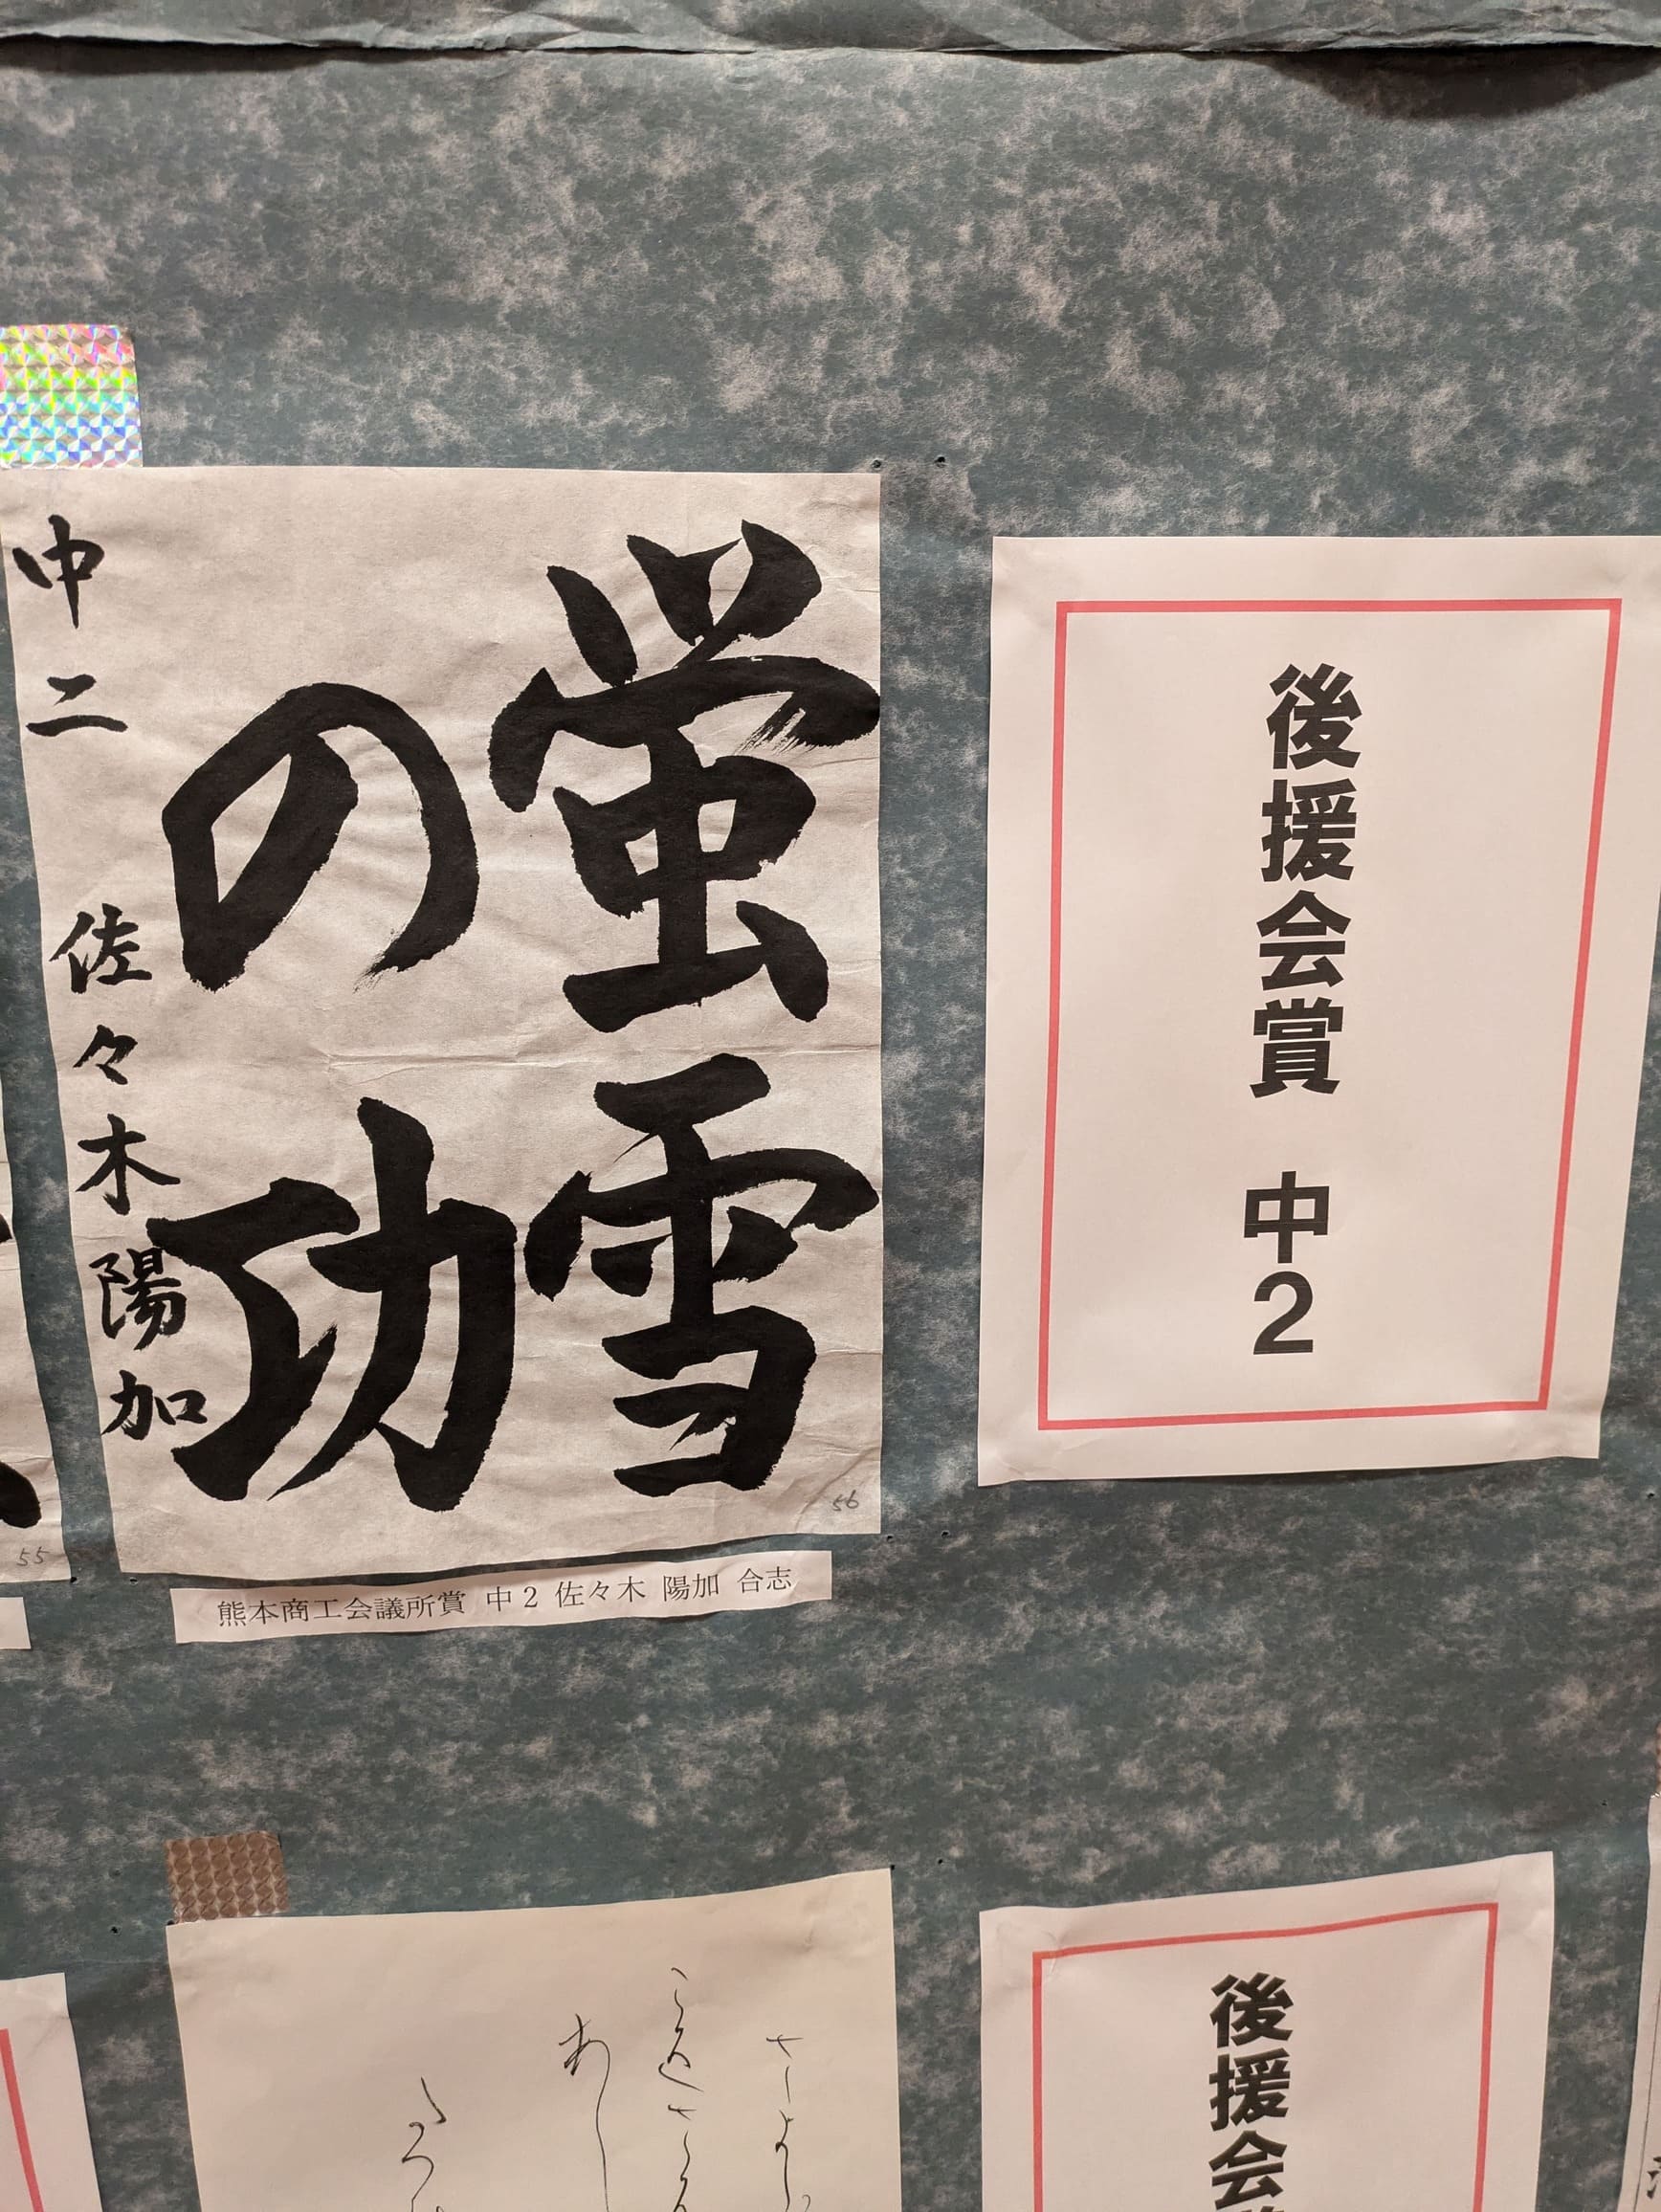 後援会賞 中2
蛍雪
の功
中二 佐々木陽加
56
熊本商工会議所賞 中2 佐々木 陽加 合志
55
後援会